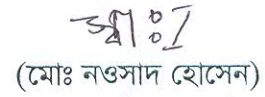 স্বাঃ/
(মোঃ নওসাদ হোসেন)